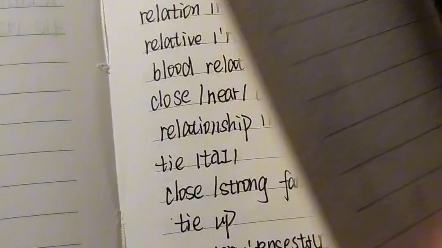 relation
relative
blood
close /near/
relationship
tie /taɪ/
close /strong
tie up